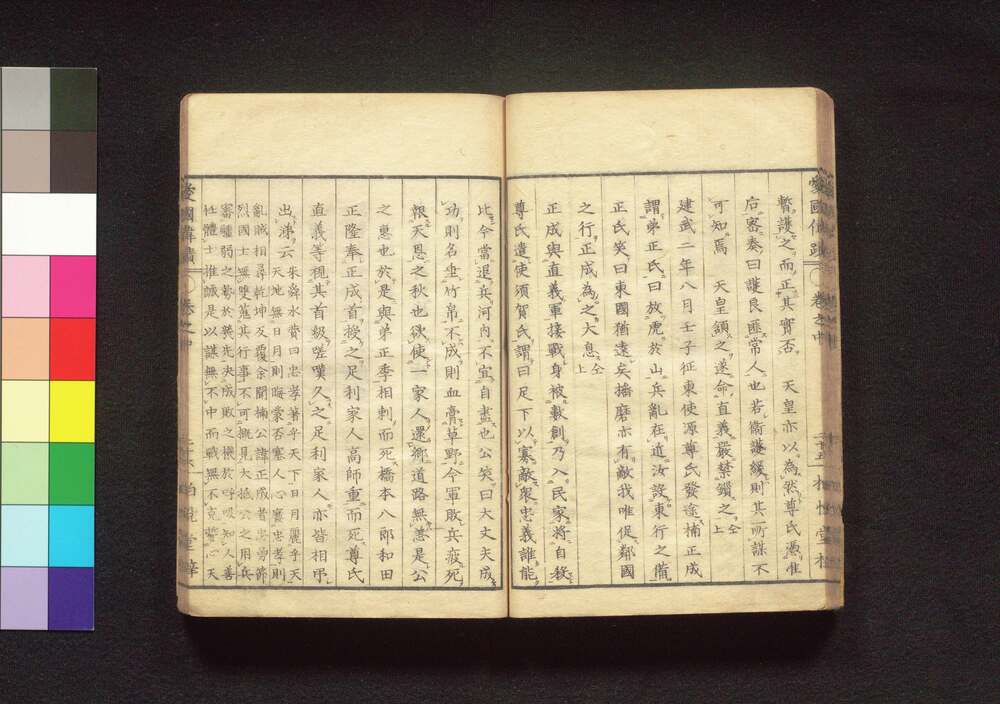 愛國偉蹟 卷之中
暫護之而正其實否 天皇亦以為然尊氏憑准
后審奏曰護良匪常人也若衞護緩則其所謀不
可知焉 天皇頷之遂命直義嚴禁鎖之仝上
建武二年八月壬子征東使源尊氏發途楠正成
謂弟正氏曰放虎於山兵亂在道汝設東行之備
正氏笑曰東國猶遠矣播磨亦有敵我唯促鄰國
之行正成為之大息仝上
正成與直義軍接戰身被數創乃入民家將自殺
尊氏遣使須賀氏謂曰足下以寡敵衆忠義誰能
比今當退兵河內不宜自盡也公笑曰大丈夫成
功則名垂竹帛不成則血膏草野今軍敗兵疲死
恨天恩之秋也欲使一家人還鄉道路無恙是公
之惠也於是與弟正季相刺而死橋本八郎和田
正隆奉正成首授之足利家人高師重而死尊氏
直義等視其首級嗟嘆久之足利家人亦皆相弔
出涕云 朱舜水賛曰忠孝著乎天下日月麗乎天
天地無日月則晦蒙否塞人心廢忠孝則
亂賊相尋乾坤反覆余聞楠公諱正成者忠勇節
烈國士無雙蒐其行事不可概見大抵公之用兵
審強弱之勢於幾先決成敗之機於呼吸知人善
任體士推誠是以謀無不中而戰無不克誓心天
愛國偉蹟 卷之中